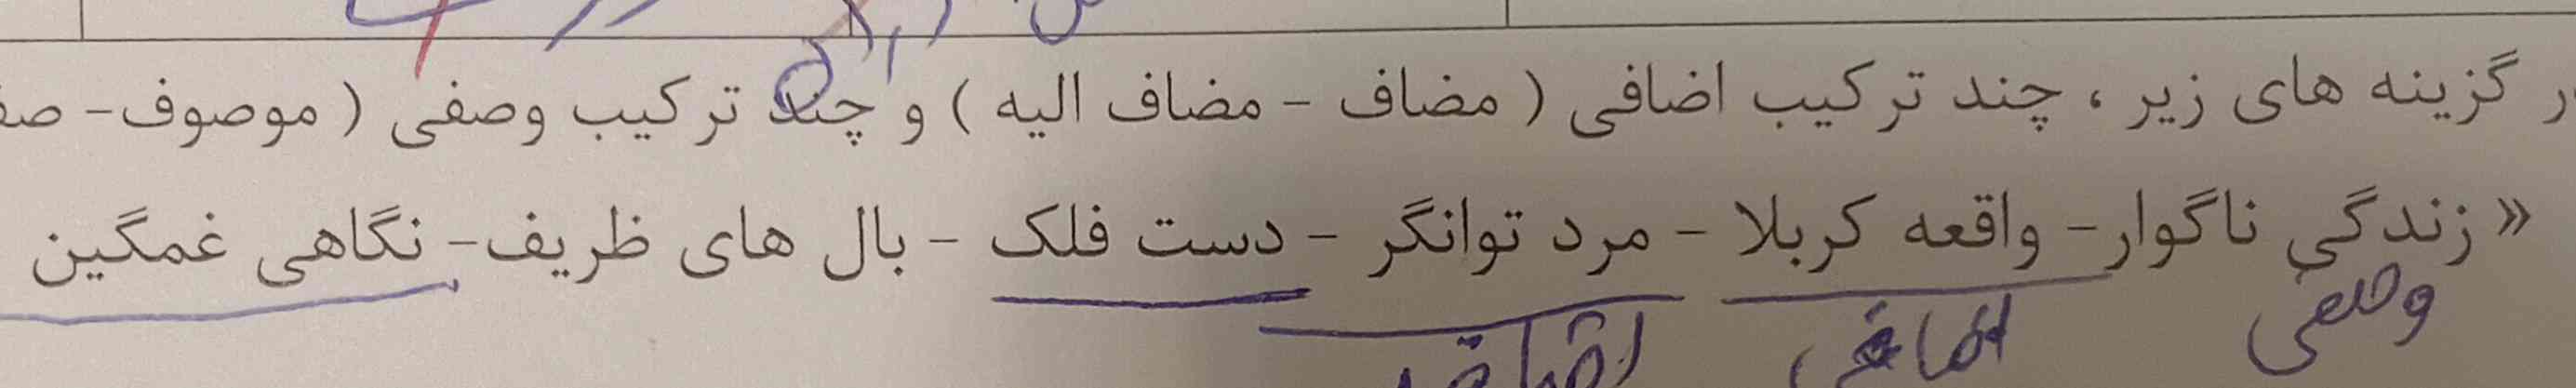 ر گزینه های زیر ، چند ترکیب اضافی ( مضاف - مضاف الیه ) و چند ترکیب وصفی ( موصوف- صف
« زندگی ناگوار- واقعه کربلا - مرد توانگر - دست فلک - بال های ظریف- نگاهی غمگین
وصفی اضافی اضافی